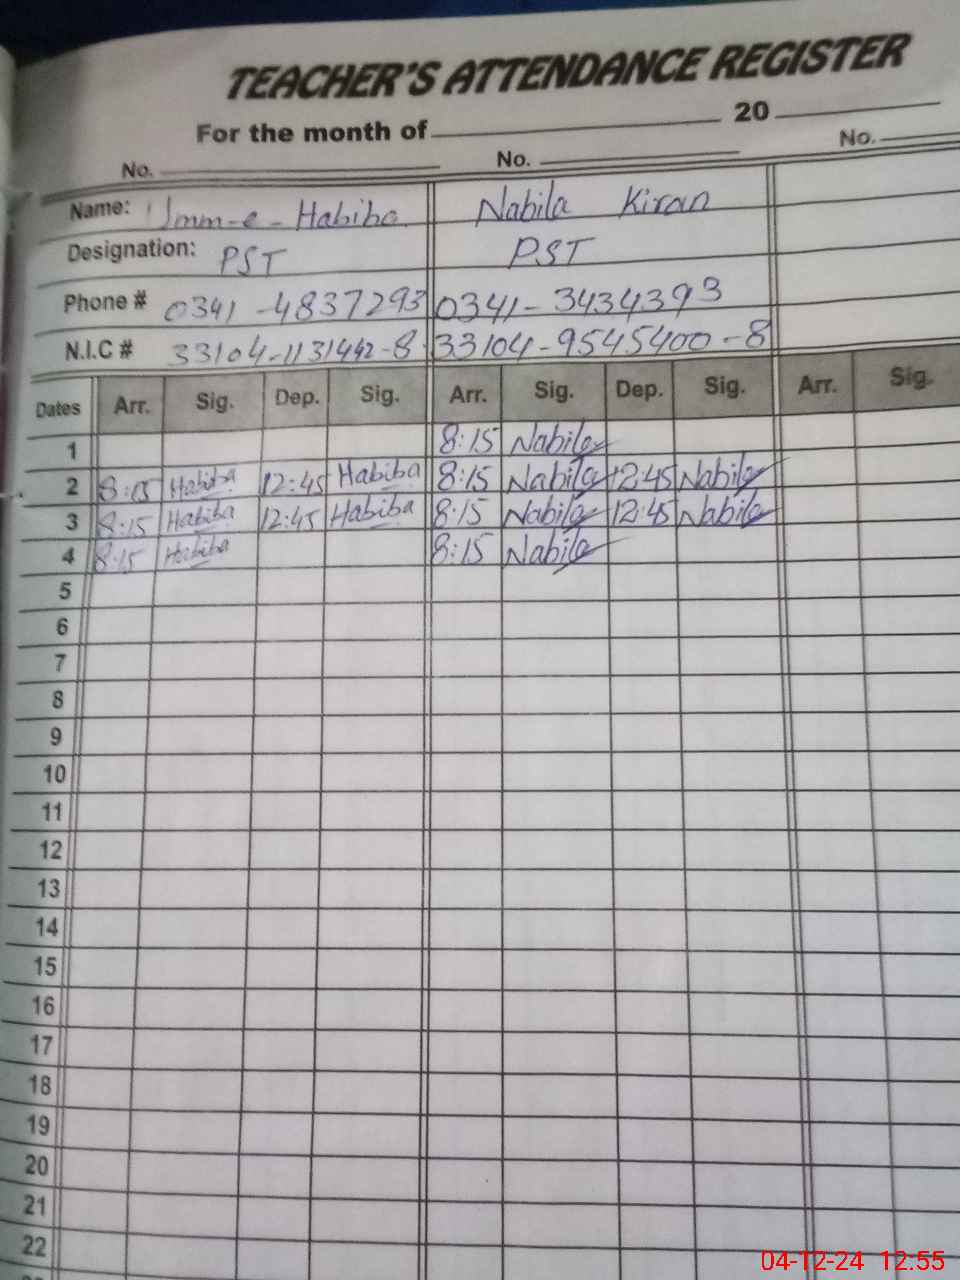 TEACHER'S ATTENDANCE REGISTER
For the month of 20
No. No. No.
Name: Umm-e-Habiba Nabila Kiran
Designation: PST PST
Phone # 0341-4837293 0341-3434393
N.I.C # 33104-1131442-8 33104-9545400-8
Dates Arr. Sig. Dep. Sig. Arr. Sig. Dep. Sig. Arr. Sig.
1 8:15 Nabila
2 8:15 Habiba 12:45 Habiba 8:15 Nabila 12:45 Nabila
3 8:15 Habiba 12:45 Habiba 8:15 Nabila 12:45 Nabila
4 8:15 Habiba 8:15 Nabila
5
6
7
8
9
10
11
12
13
14
15
16
17
18
19
20
21
22
04-12-24 12:55